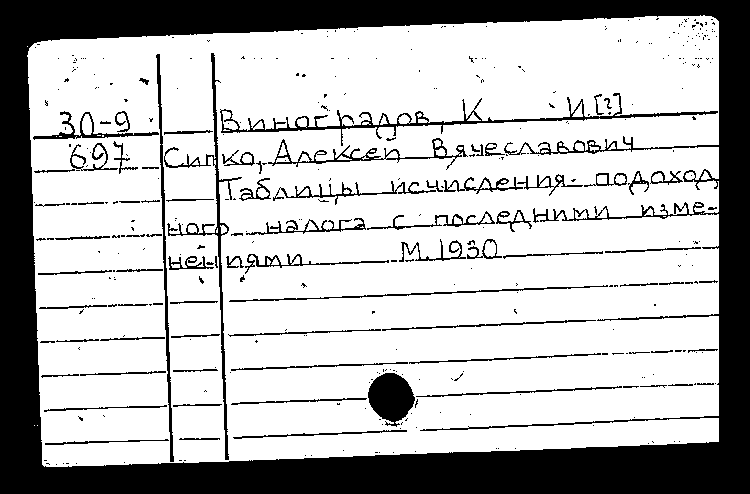 30-9 Виноградов, К. И [?]
697 Сипко, Алексей Вячеславович
Таблицы исчисления подоход
ного налога с последними изме-
нениями. М. 1930